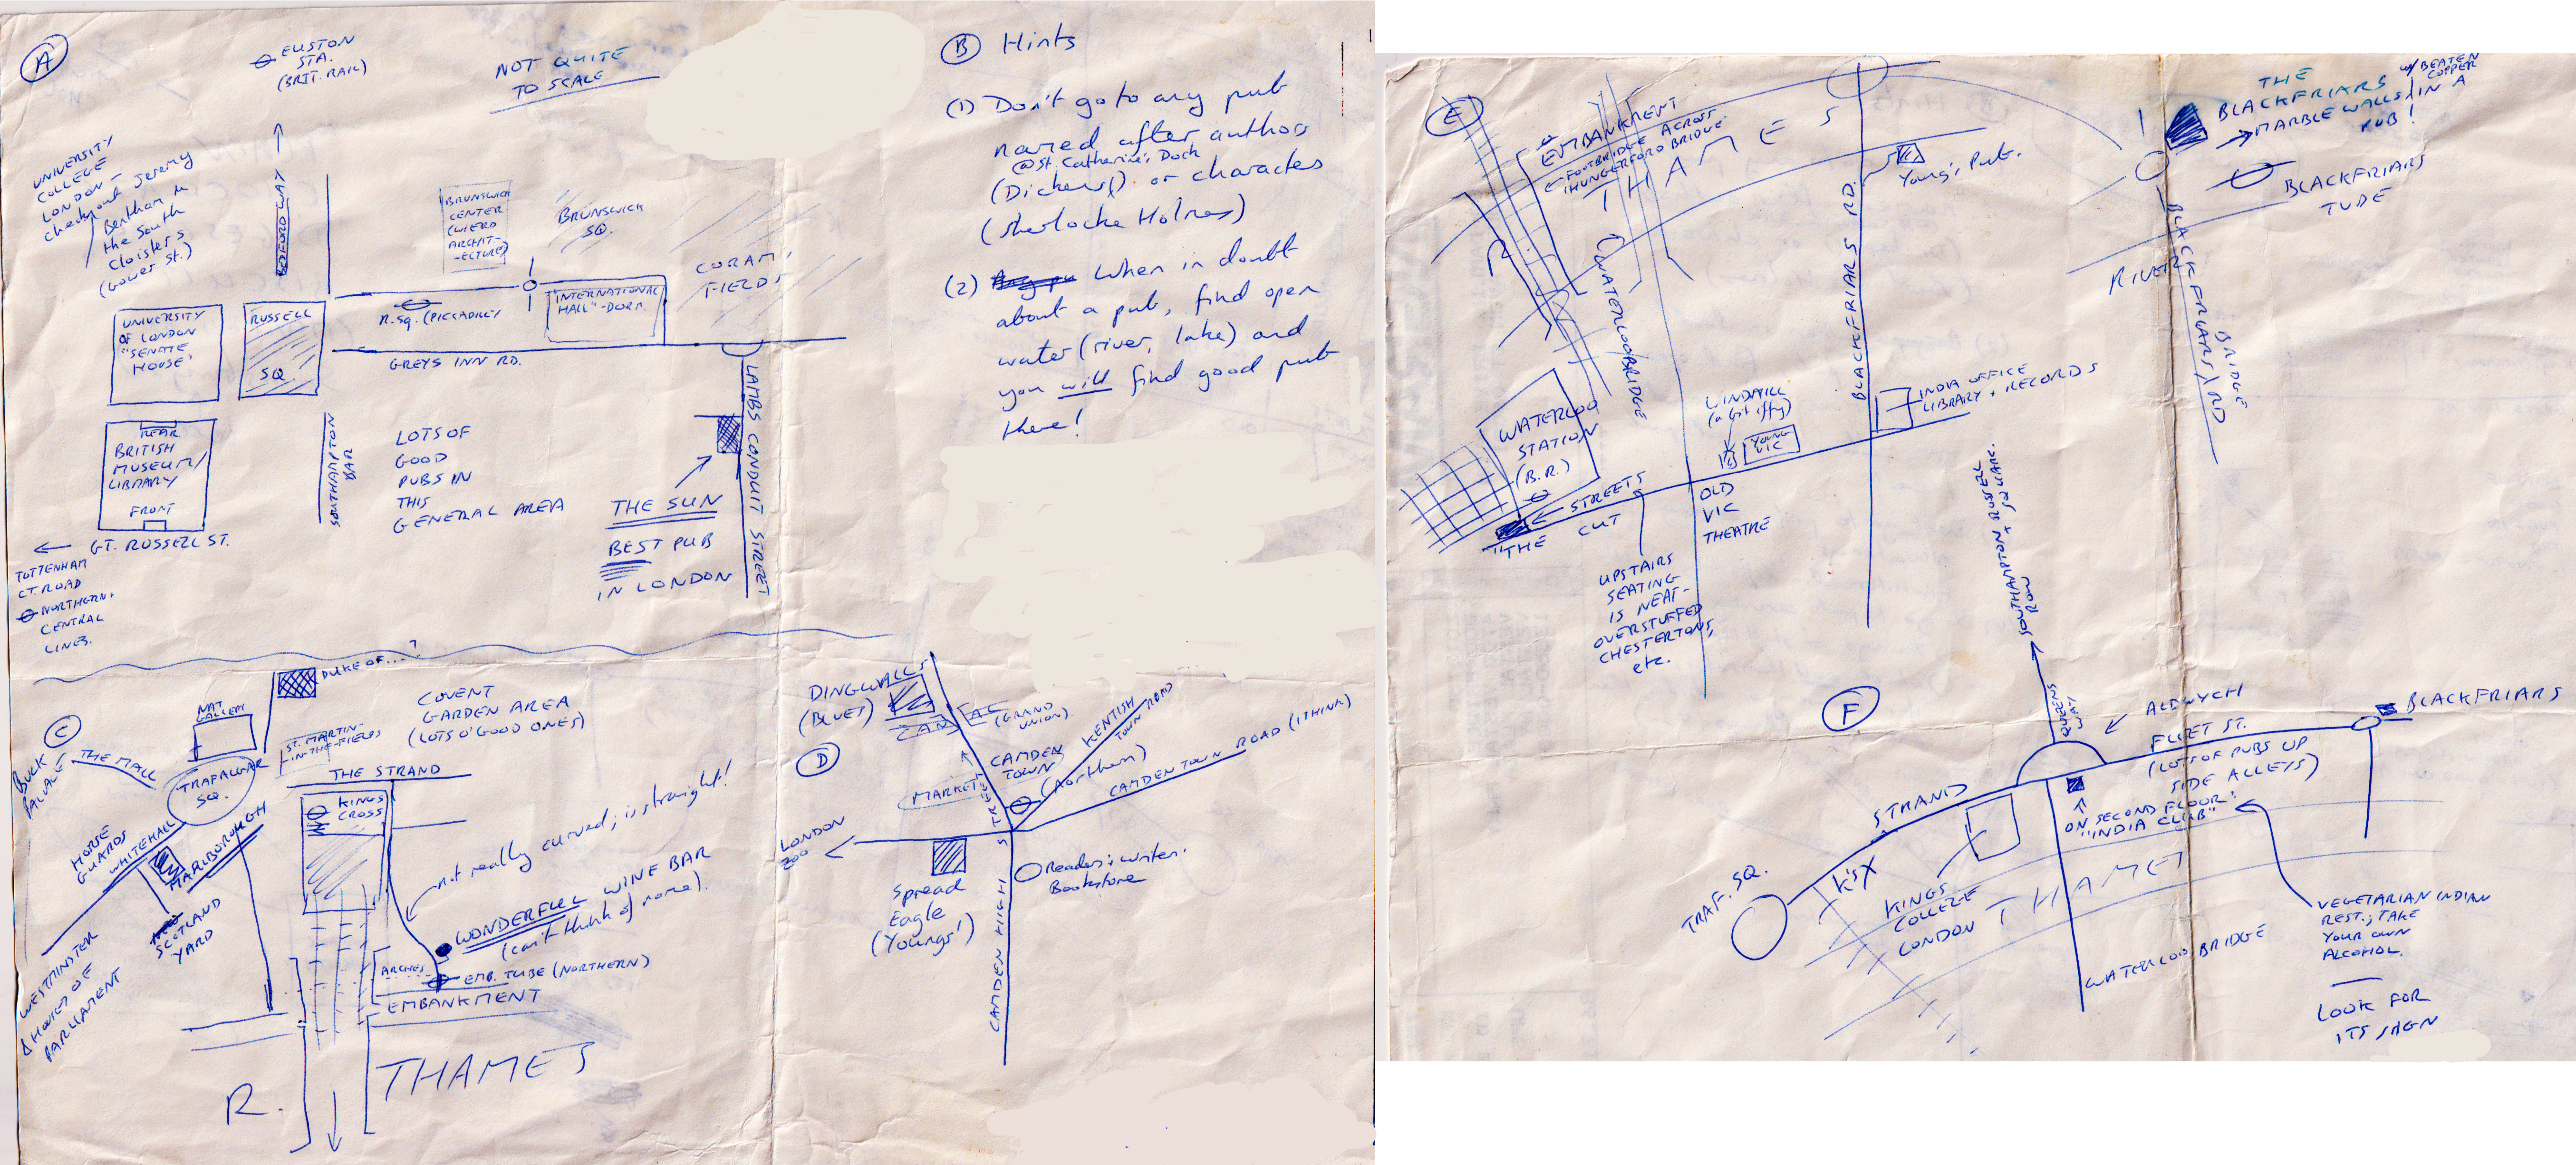 A
EUSTON
STA.
(BRIT. RAIL)
NOT QUITE
TO SCALE
UNIVERSITY
COLLEGE
LONDON -
check out Jeremy
Bentham in
the South
Cloisters
(Gower St.)
BEDFORD WAY
BRUNSWICK
CENTER
(WIERD
ARCHIT-
-ECTURE)
BRUNSWICK
SQ.
CORAM'S
FIELDS
UNIVERSITY
OF LONDON
"SENATE
HOUSE"
RUSSELL
SQ.
R. SQ. (PICCADILLY
"INTERNATIONAL
HALL" - DORM.
GREYS INN RD.
LAMBS CONDUIT STREET
REAR
BRITISH
MUSEUM/
LIBRARY
FRONT
SOUTHAMPTON
BAR
LOTS OF
GOOD
PUBS IN
THIS
GENERAL AREA
THE SUN
BEST PUB
IN LONDON
GT. RUSSELL ST.
TOTTENHAM
CT. ROAD
NORTHERN +
CENTRAL
LINES.
B Hints
(1) Don't go to any pub
named after authors
@St. Catherine's Dock
(Dickens) or characters
(Sherlocke Holmes)
(2) When in doubt
about a pub, find open
water (river, lake) and
you will find good pub
there!
C
DUKE OF....?
NAT
GALLERY
COVENT
GARDEN AREA
(LOTS O' GOOD ONES)
ST. MARTIN-
IN-THE-FIELDS
BUCK
PALACE
THE MALL
TRAFALGAR
SQ.
THE STRAND
KINGS
CROSS
HORSE
GUARDS
WHITEHALL
MARLBOROUGH
SCOTLAND
YARD
not really curved; is straight!
WONDERFUL WINE BAR
(can't think of name).
WESTMINSTER
& HOUSES OF
PARLIAMENT
ARCHES
EMB. TUBE (NORTHERN)
EMBANKMENT
R. THAMES
D
DINGWALLS
(BLUES)
CANAL
(GRAND
UNION)
KENTISH
TOWN ROAD
CAMDEN
TOWN
(Northern)
MARKET
CAMDEN TOWN ROAD (I THINK)
LONDON
ZOO
Spread
Eagle
(Youngs')
Readers & writers
Bookstore
CAMDEN HIGH STREET
E
EMBANKMENT
FOOTBRIDGE ACROSS
(HUNGERFORD BRIDGE
THAMES
(WATERLOO BRIDGE
BLACKFRIARS RD.
Young's Pub.
THE
BLACKFRIARS
MARBLE WALLS IN A
PUB!
w/ BEATEN
COPPER
BLACKFRIARS
TUBE
RIVER
BLACKFRIARS/RD
BRIDGE
WATERLOO
STATION
(B.R.)
WINDMILL
(a bit iffy)
YOUNG
VIC
INDIA OFFICE
LIBRARY + RECORDS
STREETS
"THE CUT
OLD
VIC
THEATRE
UPSTAIRS
SEATING
IS NEAT -
OVERSTUFFED
CHESTERTONS,
etc.
F
SOUTHAMPTON + RUSSELL SQUARE.
ROW
QUEENS
WAY
ALDWYCH
BLACKFRIARS
FLEET ST.
(LOTS OF PUBS UP
SIDE ALLEYS)
STRAND
ON SECOND FLOOR:
"INDIA CLUB"
TRAF. SQ.
K'S X
KINGS
COLLEGE
LONDON
THAMES
WATERLOO BRIDGE
VEGETARIAN INDIAN
REST.; TAKE
YOUR OWN
ALCOHOL.
LOOK FOR
ITS SIGN